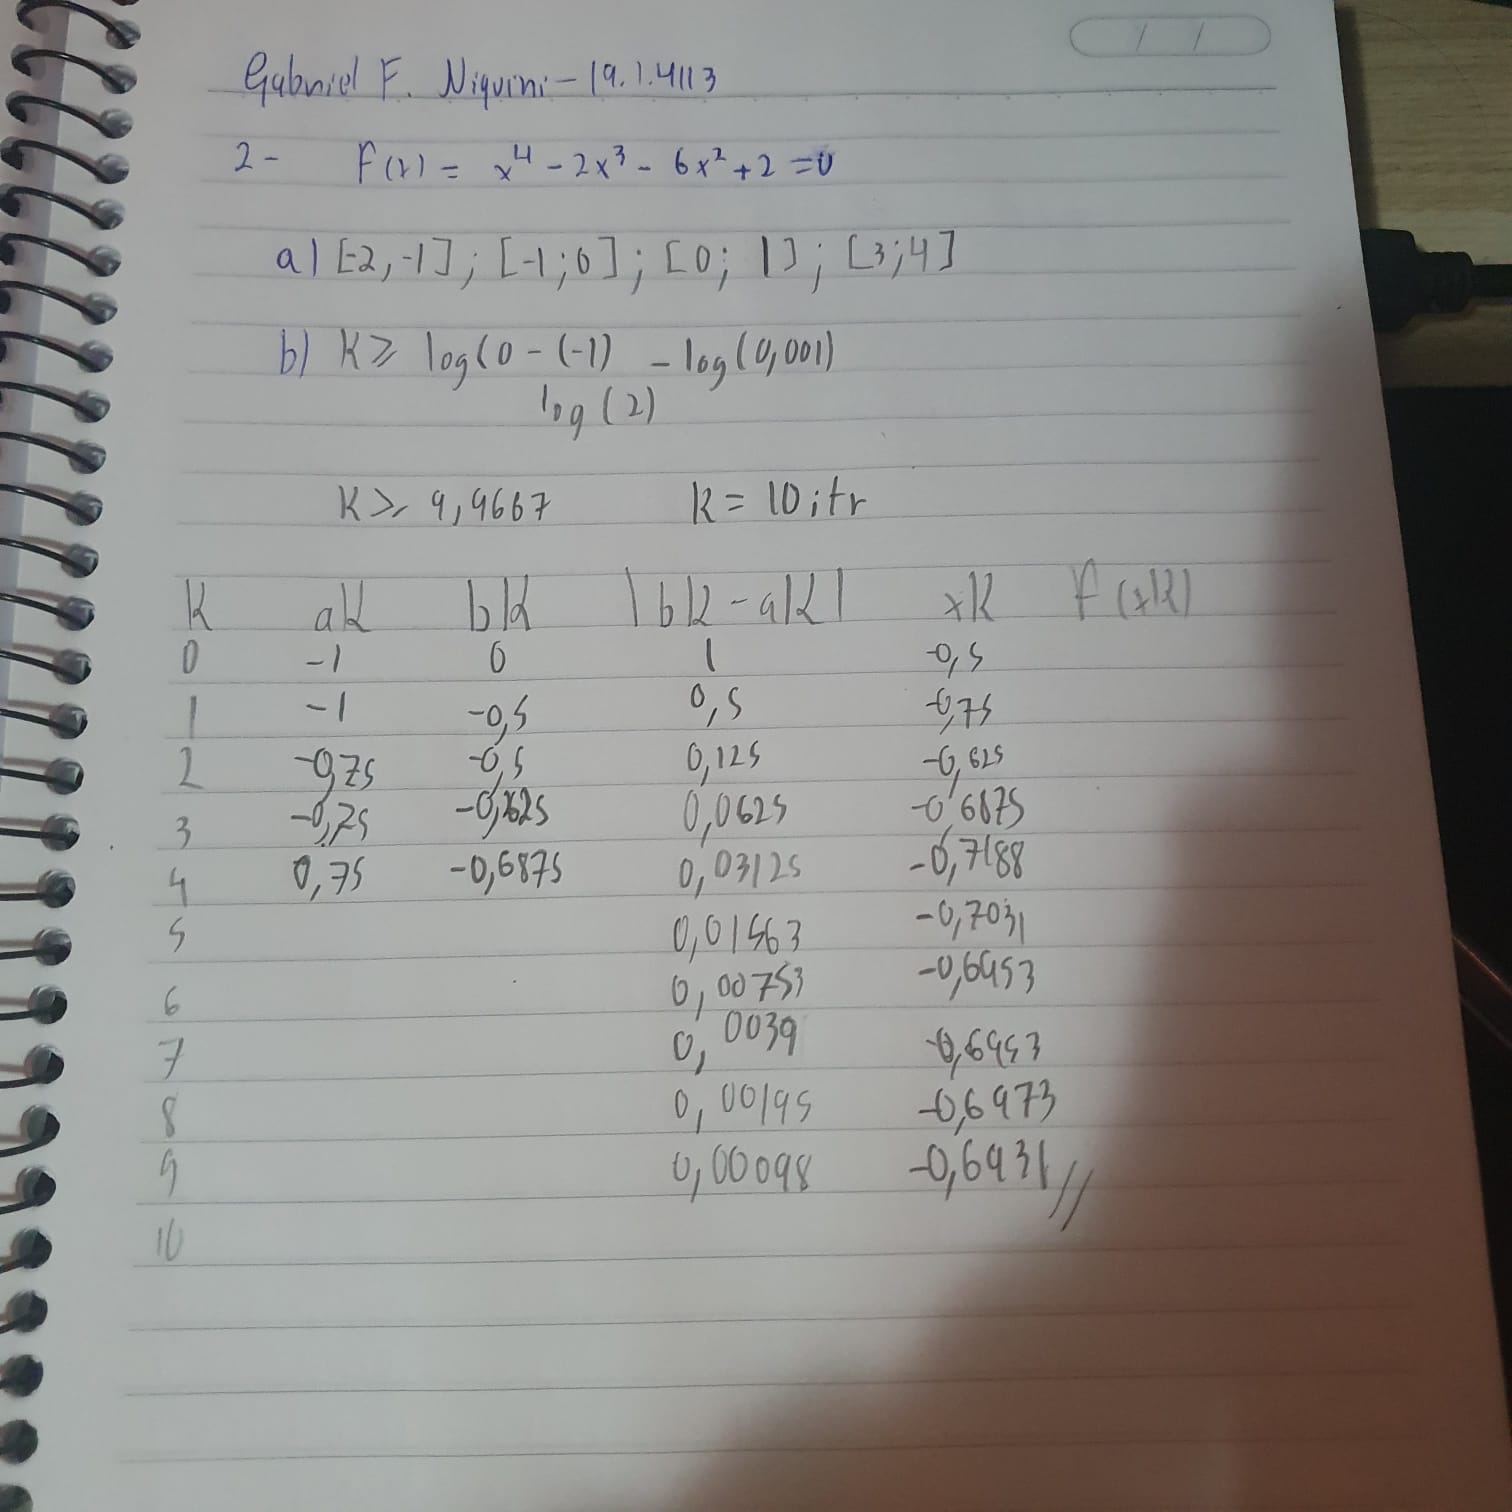 Gabriel F. Niquini - 19.1.4113
2- F(x) = x⁴ - 2x³ - 6x² + 2 = 0
a) [-2,-1]; [-1;0]; [0; 1]; [3;4]
b) K ≥ log(0-(-1) - log(0,001)
log(2)
K ≥ 9,9667 k = 10 itr
K aK bK |bK-aK| xK F(xK)
0 -1 0 1 -0,5
1 -1 -0,5 0,5 -0,75
2 -0,75 -0,5 0,125 -0,625
3 -0,75 -0,625 0,0625 -0,6875
4 0,75 -0,6875 0,03125 -0,7188
5 0,01563 -0,7031
6 0,00753 -0,6953
7 0,0039 -0,6953
8 0,00195 -0,6973
9 0,00098 -0,6931//
10